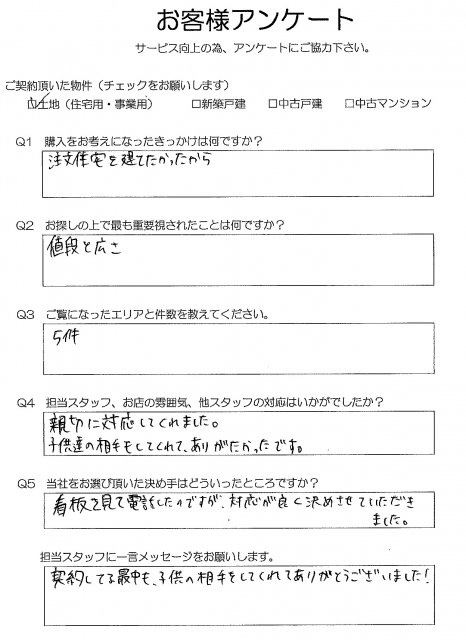 お客様アンケート
サービス向上の為、アンケートにご協力下さい。
ご契約頂いた物件（チェックをお願いします）
☑土地（住宅用・事業用） □新築戸建 □中古戸建 □中古マンション
Q1 購入をお考えになったきっかけは何ですか？
注文住宅を建てたかったから
Q2 お探しの上で最も重要視されたことは何ですか？
値段と広さ
Q3 ご覧になったエリアと件数を教えてください。
5件
Q4 担当スタッフ、お店の雰囲気、他スタッフの対応はいかがでしたか？
親切に対応してくれました。
子供達の相手もしてくれて、ありがたかったです。
Q5 当社をお選び頂いた決め手はどういったところですか？
看板を見て電話したのですが、対応が良く決めさせていただき
ました。
担当スタッフに一言メッセージをお願いします。
契約してる最中も、子供の相手をしてくれてありがとうございました！